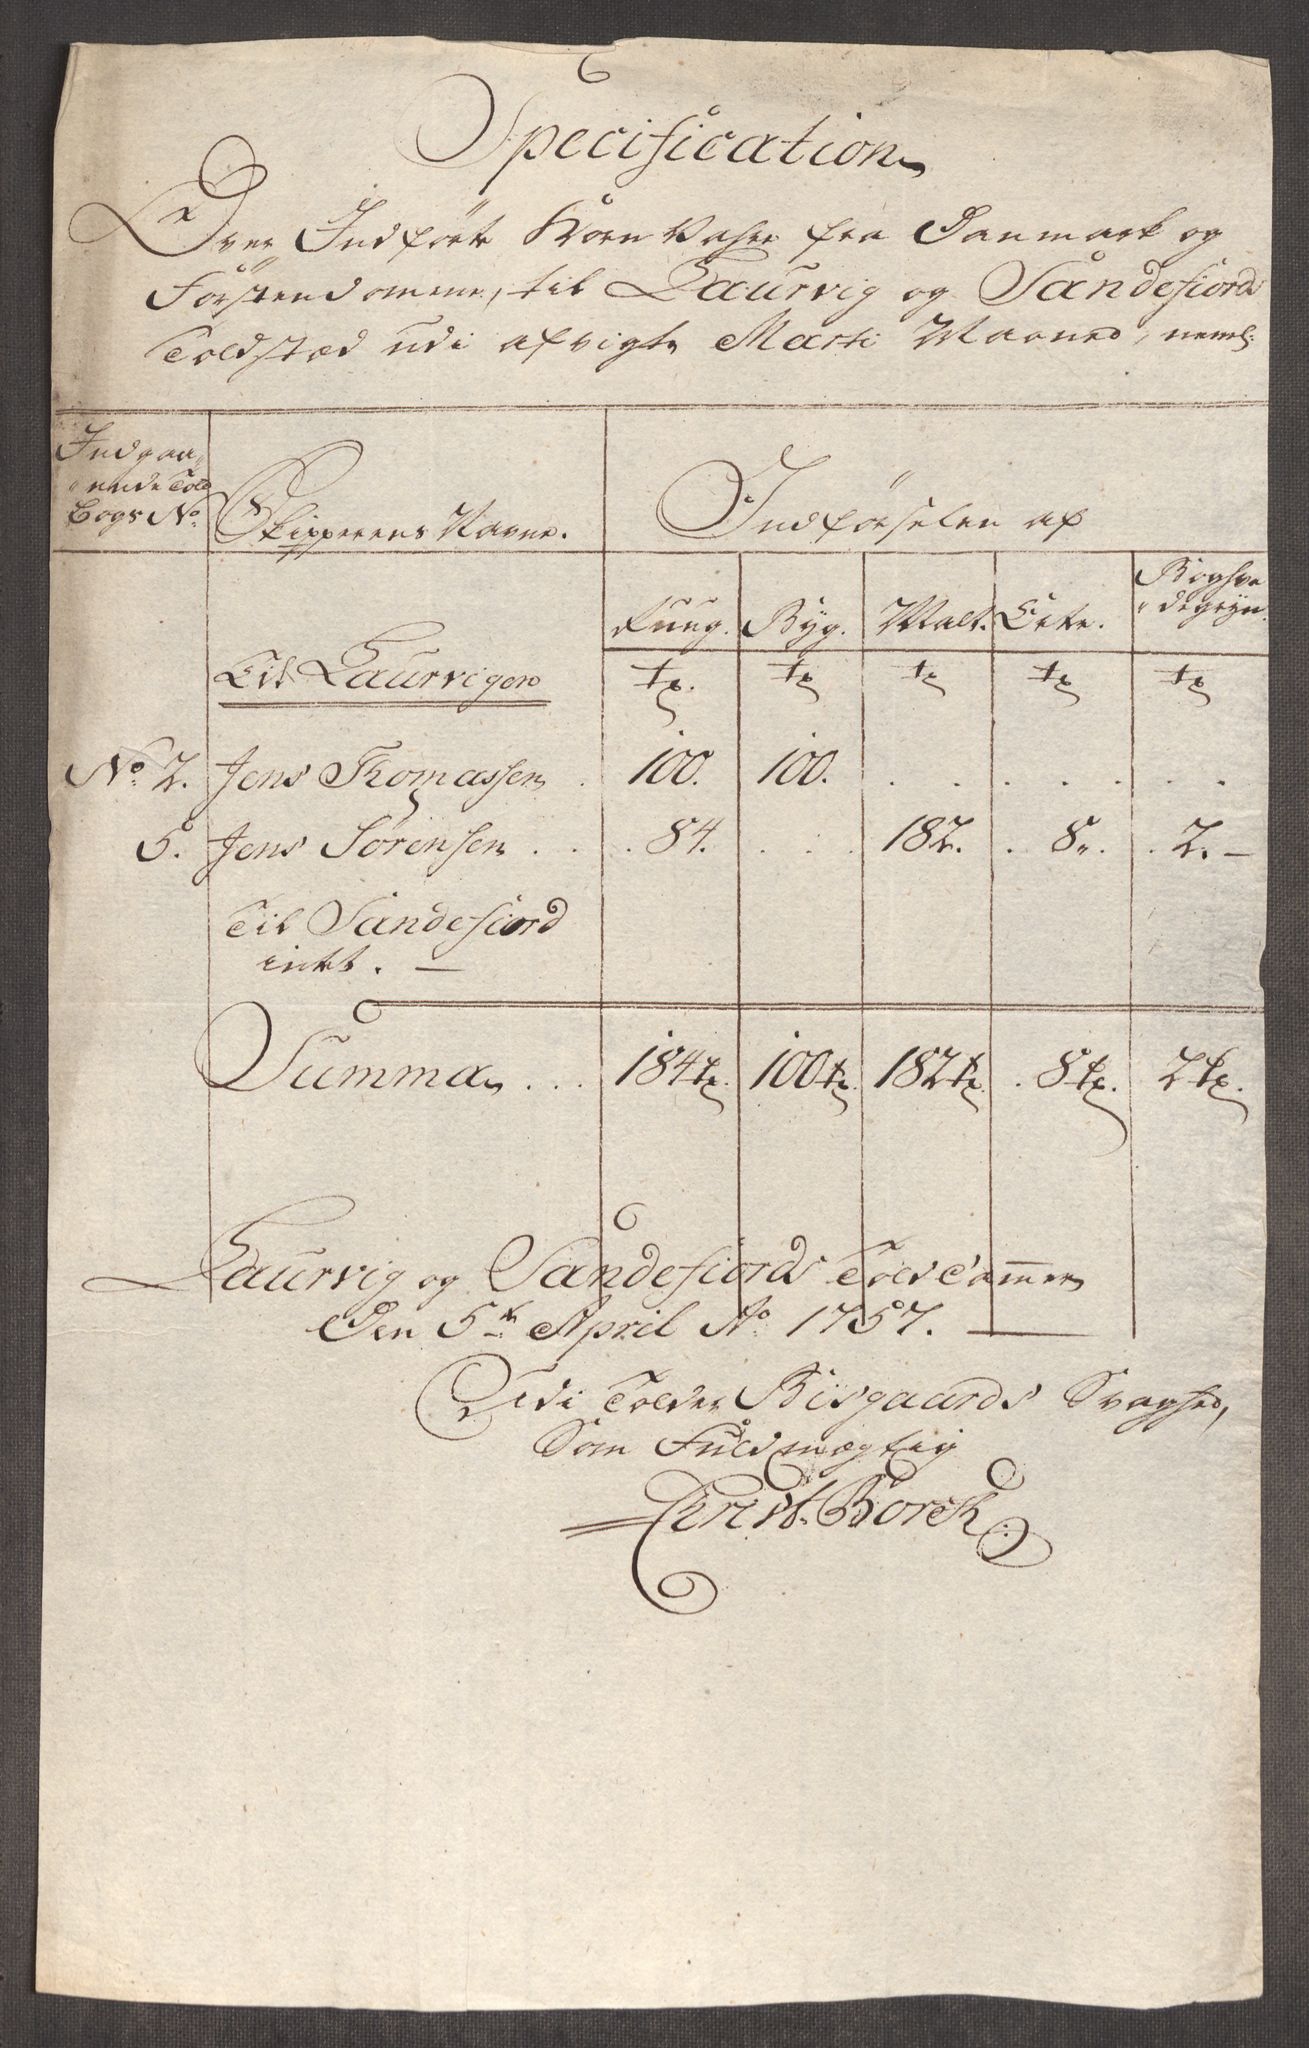 Specification
Over Indførte Korn Vahre fra Danmark og
Førstendomene, til Laurvig og Sandefiords
Toldstæd udi afvigte Marti Maaned, nemlig
Indgaa-
ende Told
Bogs No.
Skipperens Navne.
Indførselen af
Rug. Byg. Malt. Erter. Boghve-
degryn.
Til Laurvigen tr. tr. tr. tr. tr.
No. 2. Jens Thomassen . 100. 100. . . . . . .
5. Jens Sørensen . . . 84. . . . 182. . 8. . 2. —
Til Sandefiord
intet. —
Summa . . . 184 tr. 100 tr. 182 tr. . 8 tr. 2 tr.
Laurvig og Sandefiords Told Cammer
Den 5te April Ao. 1757.
Udi Tolder Bisgaards Svaghed,
Som Fuldmægtig
Christ. Borch